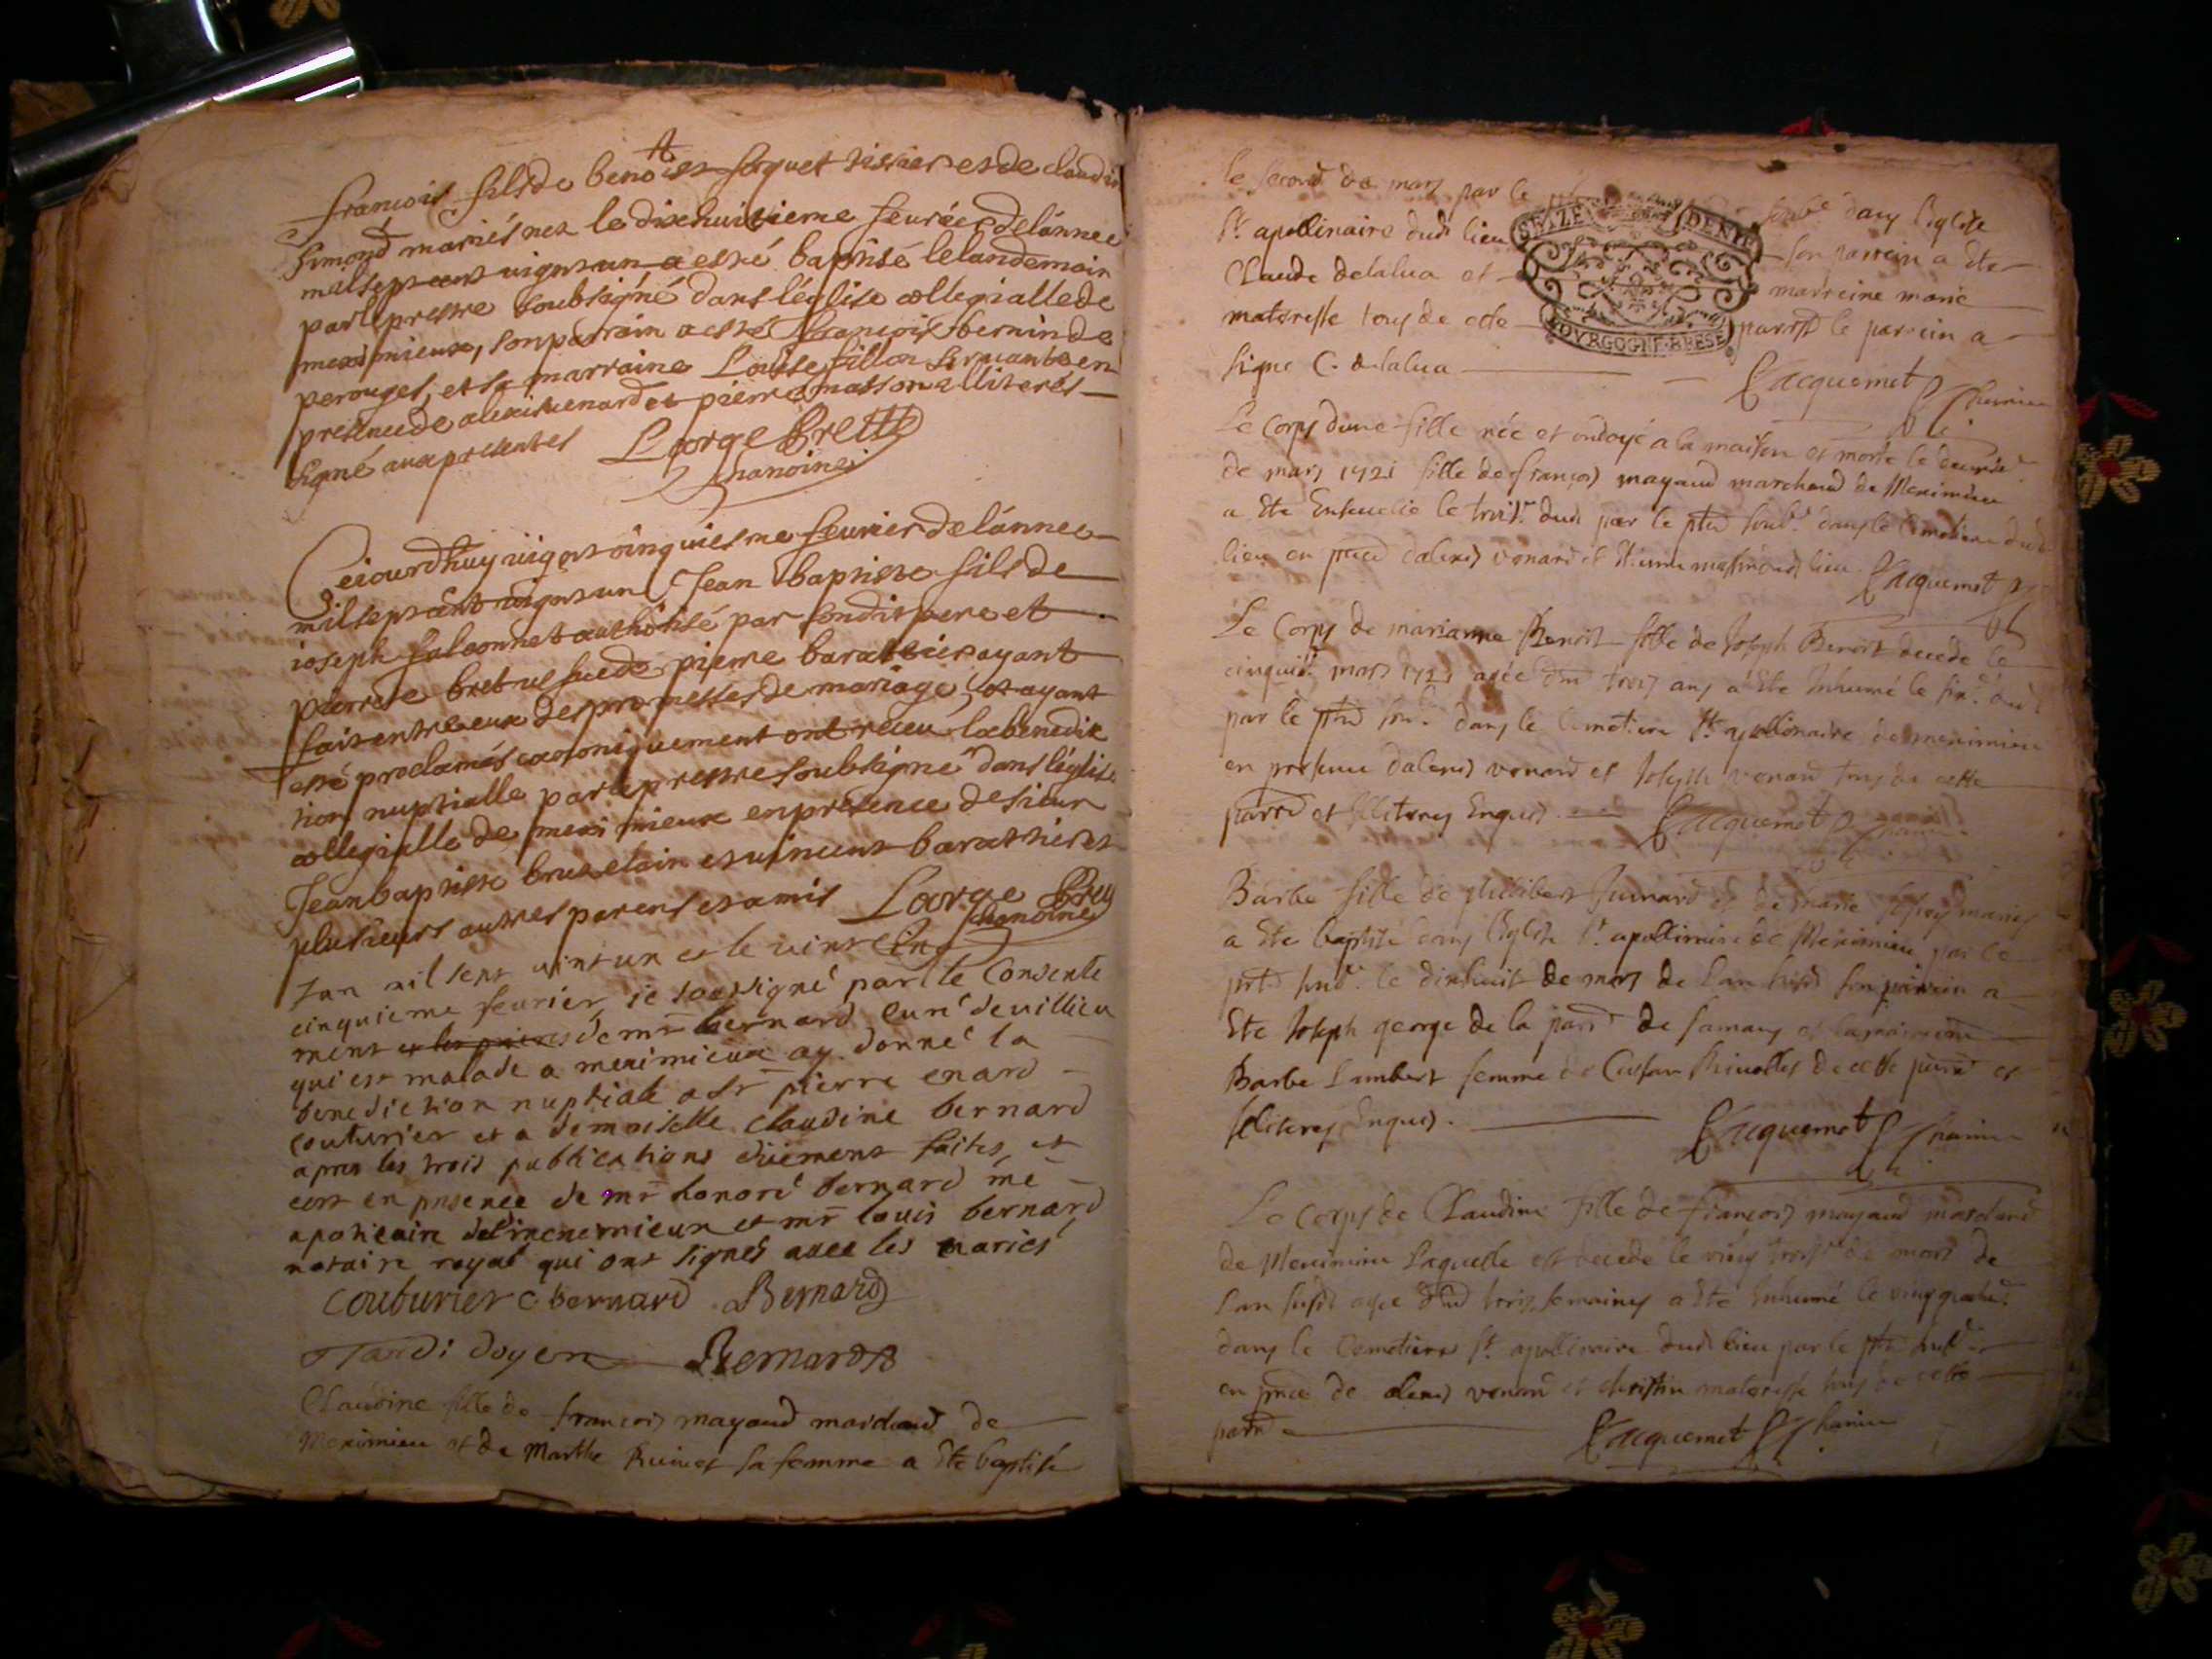 francois fils de benoist foquet tissier et de claudine
simond mariés nez le dixhuitieme feurier de lánnee
mil sept cent vignt un a esté baptisé le landemain
par le prestre soubsigné dans léglise collegialle de
meximieux, son parrain a esté francois bernin de
perouges, et sa marraine Louise fillon seruante en
presence de alexis uenard et pierre masson alliterés
signé aux presentes Lorge Brett
chanoine
Ceiourdhuy uignt cinquiesme feurier de lánnee
mil sept cent uignt un Jean baptiste fils de
ioseph falconnet authorisé par sondit pere et
pierrete bret uesue de pierre barattier ayant
fait entre eux des promesses de mariage, et ayant
esté proclamés canoniquement ont receu la benedic
tion nuptialle par le prestre soubsigné dans léglise
collegialle de meximieux en presence de sieur
Jean baptiste bruzelain et uincent barattier et
plusieurs autres parens et amis Lorge Bret
chanoine
Lan mil sept vint un et le vint cin
cinquieme feurier ie soussigné par le Consente
ment et les prieres de mr bernard curé de villieu
qui est malade a meximieux ay donné la
benediction nuptiale a Sr pierre enard
couturier et a demoiselle Claudine bernard
apres les trois publications düement faites, et
cest en presence de mr honoré bernard me
apoticaire de meximieux et mr louis bernard
notaire royal qui ont signés auec les mariés
Couturier C bernard Bernard
Tardi doyen Bernard
Claudine fille de francois mayaud marchand de
Meximieu et de Marthe Ruinet sa femme a Ete baptisée
le second de mars par le soubé dans leglise
St apollinaire dudt lieu son parrein a Ete
Claude delalua et marreine marie
materesse tous de cette parrsse le parrein a
signe C. delalua Jacquemet chanoine
SEIZE DENIE
BOVRGOGNE BRESE
Le Corps dune fille née et ondoyé a la maison et morte le deuxie
de mars 1721 fille de françois mayaud marchand de Meximieu
a Ete Enseuelie le trois. dud par le ptre soub. dans le Cimetiere dud
lieu en pnce dalexis venard et lieu Jacquemet
Le Corps de marianne Benoit fille de Joseph Benoit decede le
cinquie mars 1721 agée dun trois ans a Ete Inhumé le six. dud
par le ptre sou. dans le Cimetiere St apollinaire de meximieu
en presence dalexis venard et Joseph venard tous de cette
parrs et Illiterez Enquis. Jacquemet chanoine
Barbe fille de philibert Juinard et de marie mariez
a Ete baptisé dans leglise St apollinaire de Meximieu par le
ptre soub. le dixhuit de mars de Lan susd son parrein a
Ete Joseph george de la parr de samans et la marreine
Barbe Lambert femme de Rinolles de cette parrs et
Illiterez Enquis. Jacquemet chanoine
Le Corps de Claudine fille de françois mayaud marchand
de Meximieu Laquelle est decede le vingt trois. de mars de
Lan susdt agée dun trois semaines a Eté Inhumé le vingt quatr.
dans le Cemetiere St apollinaire dudt lieu par le ptre soub.
en pnce de alexis venard et christin materesse tous de cette
parrs Jacquemet chanoine